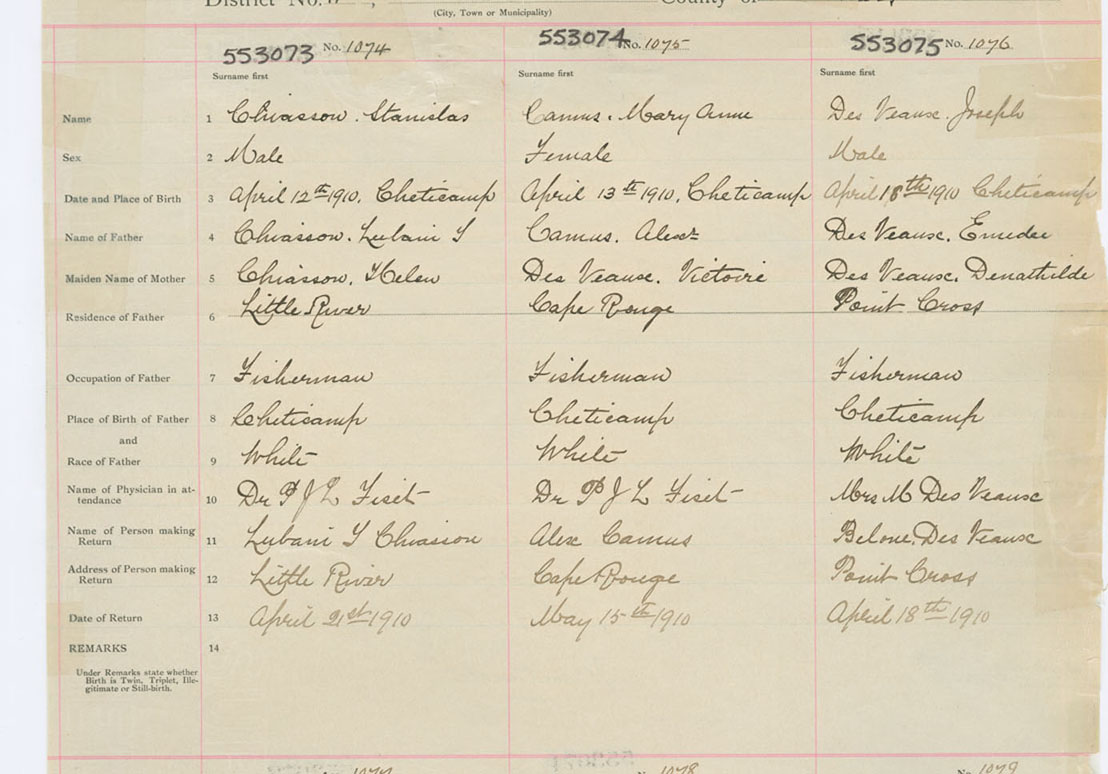 District No.
County of
(City, Town or Municipality)
553073 No. 1074 553074 No. 1075 553075 No. 1076
Surname first Surname first Surname first
Name 1 Chiasson. Stanislas Camus. Mary Anne Des Veaux. Joseph
Sex 2 Male Female Male
Date and Place of Birth 3 April 12th 1910. Cheticamp April 13th 1910. Cheticamp April 18th 1910 Cheticamp
Name of Father 4 Chiasson. Lubani S Camus. Alexr Des Veaux. Emedee
Maiden Name of Mother 5 Chiasson. Helen Des Veaux. Victoire Des Veaux. Denathilde
Residence of Father 6 Little River Cape Rouge Point Cross
Occupation of Father 7 Fisherman Fisherman Fisherman
Place of Birth of Father 8 Cheticamp Cheticamp Cheticamp
and
Race of Father 9 White White White
Name of Physician in at-
tendance 10 Dr P J L Fiset Dr P J L Fiset Mrs M Des Veaux
Name of Person making
Return 11 Lubani S Chiasson Alex Camus Des Veaux
Address of Person making
Return 12 Little River Cape Rouge Point Cross
Date of Return 13 April 21st 1910 May 15th 1910 April 18th 1910
REMARKS 14
Under Remarks state whether
Birth is Twin, Triplet, Ille-
gitimate or Still-birth.
No. 1078 No. 1079